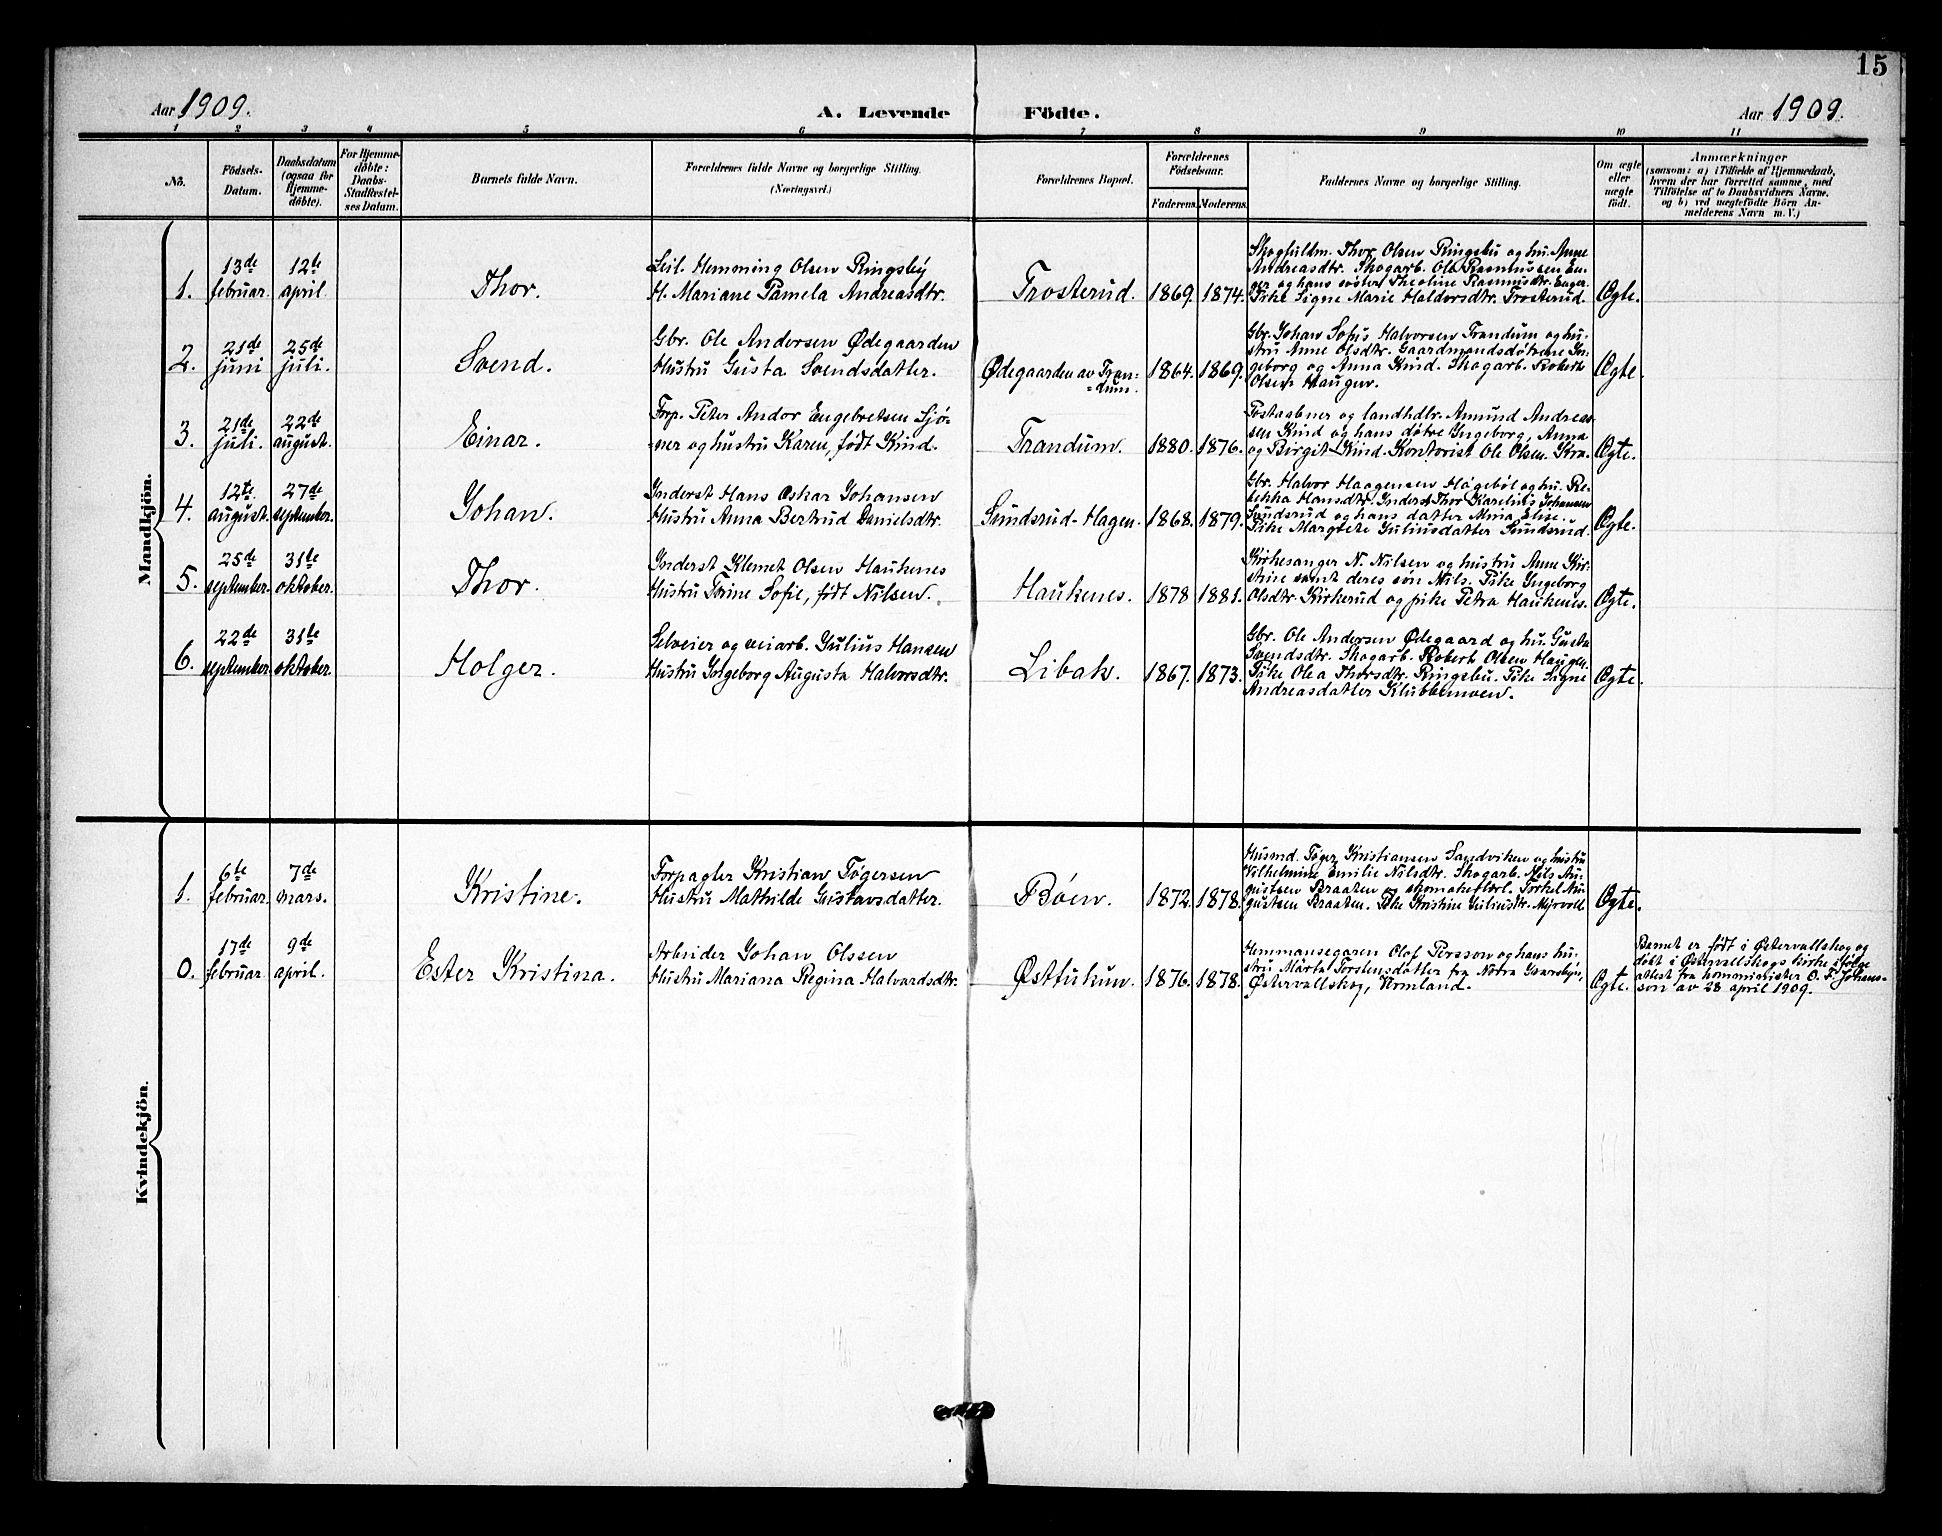 15
Aar 1909. A. Levende Födte. Aar 1909.
1 2 3 4 5 6 7 8 9 10 11
No.
Födsels-
Datum.
Daabsdatum
(ogsaa for
Hjemme-
döbte).
For Hjemme-
döbte:
Daabs-
Stadfæstel-
ses Datum.
Barnets fulde Navn.
Forældrenes fulde Navne og borgerlige Stilling.
(Næringsvei.)
Forældrenes Bopæl.
Forældrenes
Födselsaar.
Faderens. Moderens.
Faddernes Navne og borgerlige Stilling.
Om ægte
eller
uægte
födt.
Anmærkninger
(saasom: a) i Tilfælde af Hjemmedaab,
hvem der har forrettet samme, med
Tilföielse af to Daabsvidners Navne.
og b) ved uægtefödte Börn An-
melderens Navn m. V.)
Mandkjön.
1.
13de
februar.
12te
april.
Thor.
Leil. Hemming Olsen Ringsby
H. Mariane Pamela Andreasdtr.
Trosterud.
1869. 1874.
Skogfuldm. Thor Olsen Ringsbu og hu. Anne
Andreasdtr. Skogarb. Ole Rasmussen En-
ger og hans søster Theoline Rasmusdtr. Enger.
Pike Signe Marie Haldorsdtr. Trosterud.
Ægte.
2.
21de
juni
25de
juli.
Svend.
Gbr. Ole Andersen Ødegaarden
Hustru Gusta Svendsdatter.
Ødegaarden av Tran-
=dum.
1864. 1869.
Gbr. Johan Sofus Halvorsen Trandum og hu-
stru Anne Olsdtr. Gaardmandsdøtrene In-
geborg og Anna Kind. Skogarb. Robert
Olsen Haugen.
Ægte.
3.
21de
juli.
22de
august.
Einar.
Forp. Peter Andor Engebretsen Sjø-
=ner og hustru Karen, født Kind.
Trandum.
1880. 1876.
Postaabner og landhdlr. Amund Andreas-
sen Kind og hans døtre Ingeborg, Anna
og Birgit Kind. Kontorist Ole Olsen Kra.
Ægte.
4.
12te
august.
27de
september.
Johan.
Inderst Hans Oskar Johansen
Hustru Anna Bertrud Danielsdtr.
Sundsrud-Hagen.
1868. 1879.
Gbr. Halvor Haagensen Høgebøl og hu. Re-
bekka Hansdtr. Inderst Thor Karelius Johansen
Sundsrud og hans datter Mina Elise.
Pike Margrete Juliusdatter Sundsrud.
Ægte.
5.
25de
september.
31te
oktober.
Thor.
Inderst Klemet Olsen Haukenes
Hustru Torine Sofie, født Nilsen.
Haukenes.
1878 1881.
Kirkesanger N. Nilsen og hustru Anne Kir-
stine samt deres søn Nils. Pike Ingeborg
Olsdtr. Kirkerud og pike Petra Haukenes.
Ægte.
6.
22de
september.
31te
oktober.
Holger.
Selveier og veiarb. Julius Hansen
Hustru Ingeborg Augusta Halvorsdtr.
Libak.
1867. 1873.
Gbr. Ole Andersen Ødegaard og hu. Gusta
Svendsdtr. Skogarb. Robert Olsen Haugen.
Pike Olea Thorsdtr. Ringsbu. Pike Signe
Andreasdatter Klubbemoen.
Ægte.
Kvindekjön.
1.
6te
februar.
7de
mars.
Kristine.
Forpagter Kristian Tøgersen
Hustru Mathilde Gustavsdatter.
Bøen.
1872. 1878.
Husmd. Tøger Kristiansen Sandviken og hustru
Vilhelmine Emilie Nilsdtr. Skogarb. Nils Au-
gustsen Braaten og skomakerlærl. Torkel Au-
gustsen Braaten. Pike Kristine Juliusdtr. Myrvoll
Ægte.
0.
17de
februar.
9de
april.
Ester Kristina.
Arbeider Johan Olssen
Hustru Mariana Regina Halvardsdtr.
Østtukun.
1876. 1878.
Hemmansegaren Olof Persson og hans hu-
stru Märta Torstensdatter fra Norra
Østervallskog, Vermland.
Ægte.
Barnet er født i Østervallskog og
døbt i Østervallskogs kirke ifølge
attest fra kommminister O. F. Johans-
son av 28 april 1909.